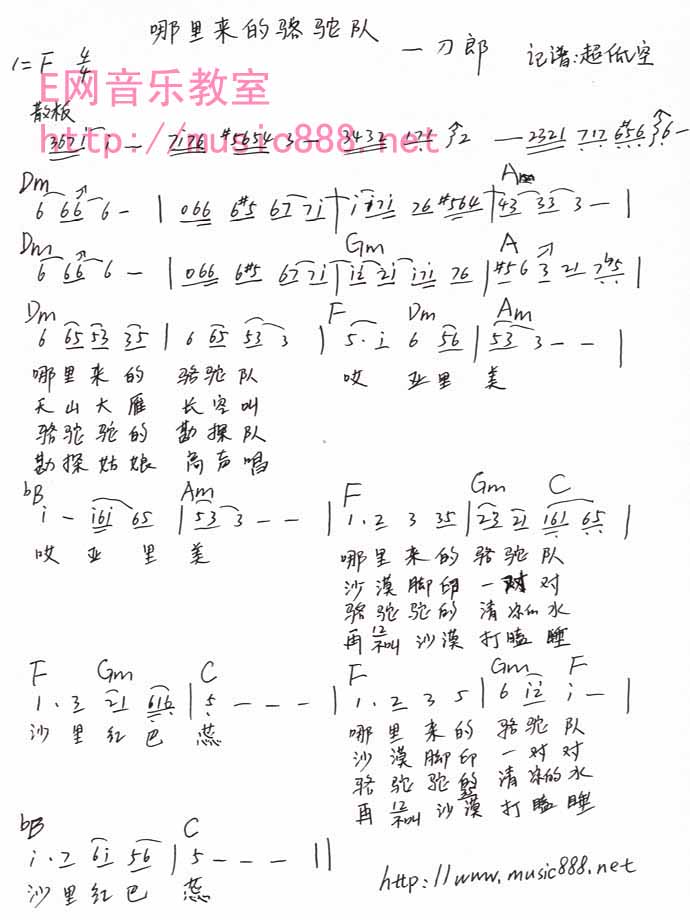 哪里来的骆驼队 — 刀郎 记谱:超低空
1=F 4/4
E网音乐教室
散板
http://music888.net
3671 i — 7176 #5654 3 — 3432 171 2 — 2321 717 6#56 6 —
Dm Am
6 66 6 — | 066 6#5 67 7i | i i7i 76 #564 | 43 33 3 — |
Dm Gm A
6 66 6 — | 066 6#5 67 7i | i2 2i i7i 76 | #56 3 21 7b5 |
Dm F Dm Am
6 65 53 35 | 6 65 53 3 | 5· i 6 56 | 53 3 — — |
哪里来的 骆驼队 哎 亚里美
天山大雁 长空叫
骆驼驼的 勘探队
勘探姑娘 高声唱
bB Am F Gm C
i — i6i 65 | 53 3 — — | 1·2 3 35 | 23 21 161 65 |
哎 亚 里 美 哪里来的骆驼队
沙漠脚印 一对对
骆驼驼的 清凉的水
再叫沙漠打瞌睡
F Gm C F Gm F
1·3 21 616 | 5 — — — | 1·2 3 5 | 6 i2 i — |
沙里红巴 蕊 哪里来的 骆驼队
沙漠脚印 一对对
骆驼驼的 清凉的水
再叫沙漠打瞌睡
bB C
i·7 6i 56 | 5 — — — ||
沙里红巴 蕊
http://www.music888.net